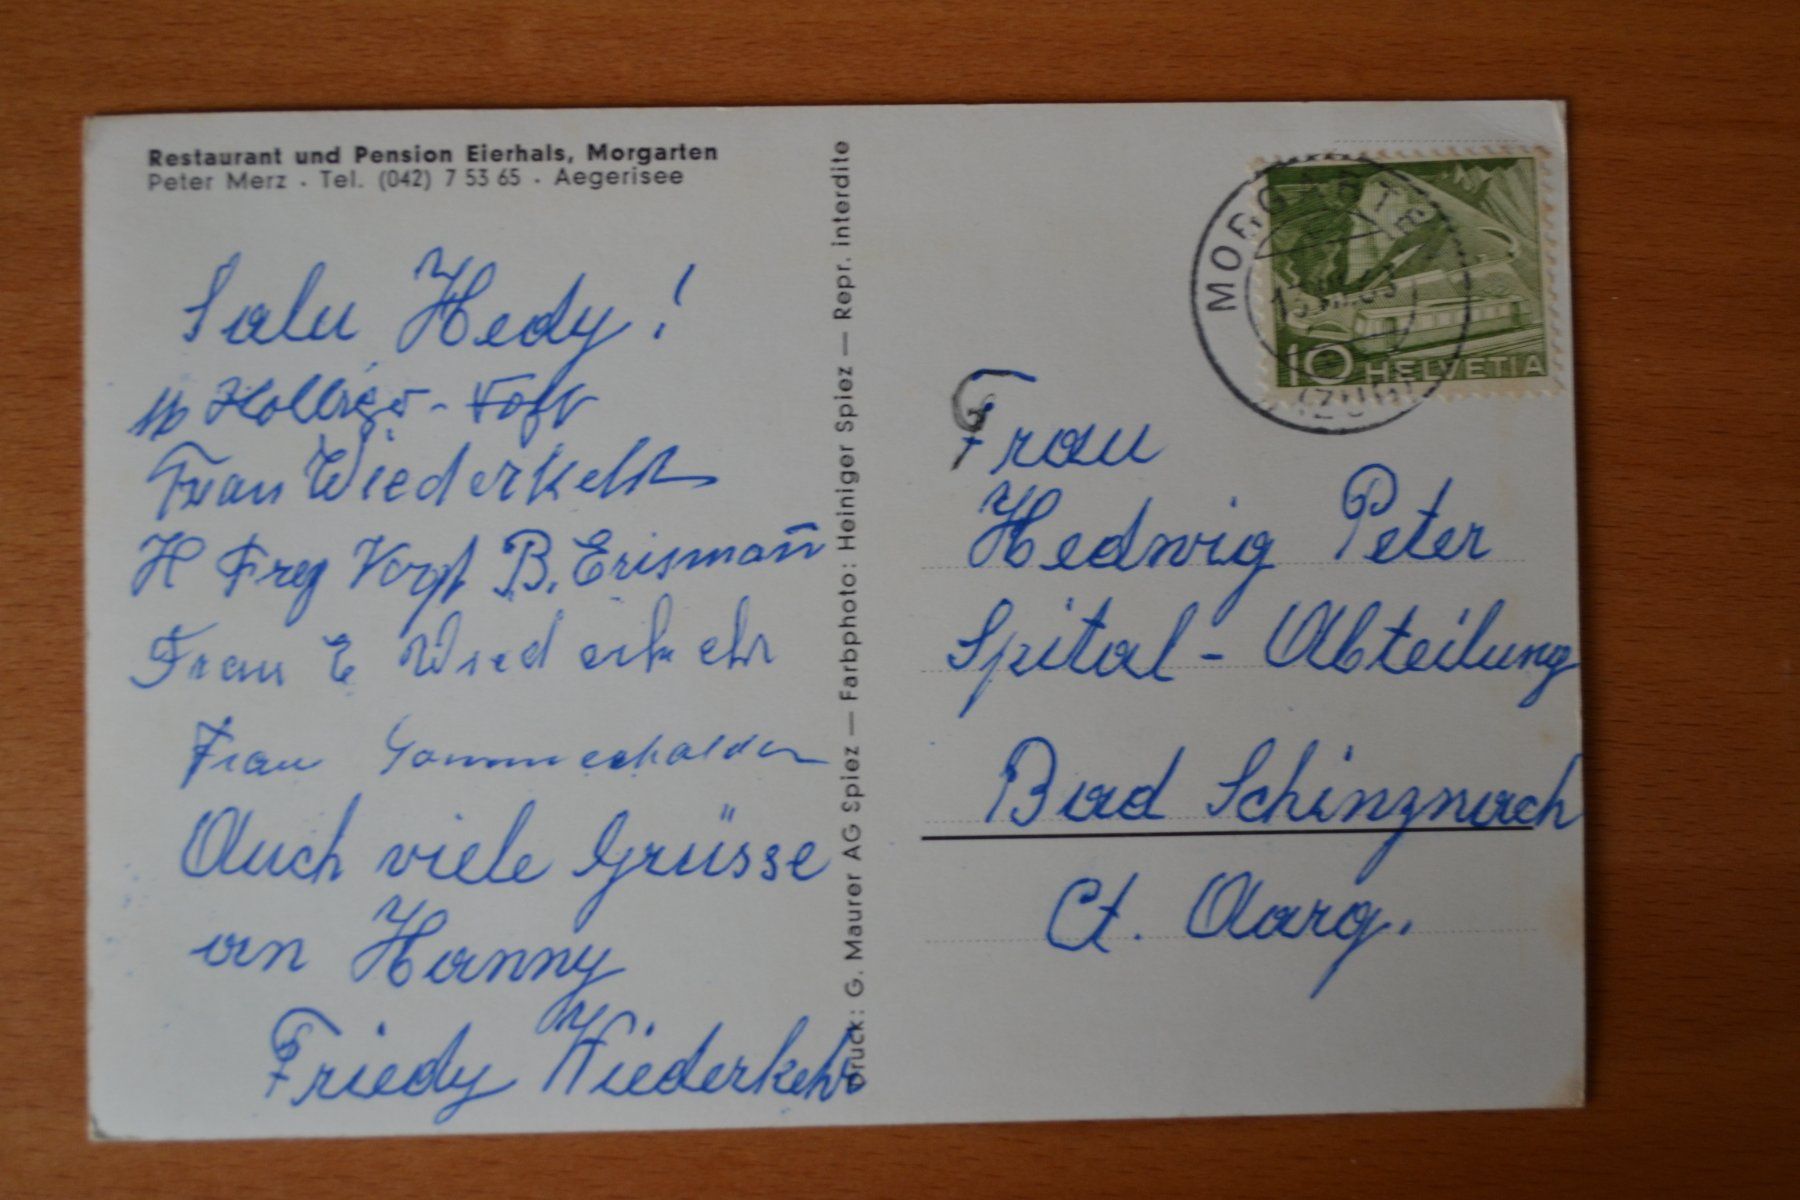 Restaurant und Pension Eierhals, Morgarten
Peter Merz · Tel. (042) 7 53 65 · Aegerisee
Salu Hedy!
Frau Wiederkehr
H Frey Vogt B. Erismann
Frau E Wiederkehr
Frau Gommerhalder
Auch viele Grüsse
an Hanny
Friedy Wiederkehr
Druck: G. Maurer AG Spiez — Farbphoto: Heiniger Spiez — Repr. interdite
MORGARTEN
(ZUG)
10 HELVETIA
Frau
Hedwig Peter
Spital - Abteilung
Bad Schinznach
Ct. Aarg.